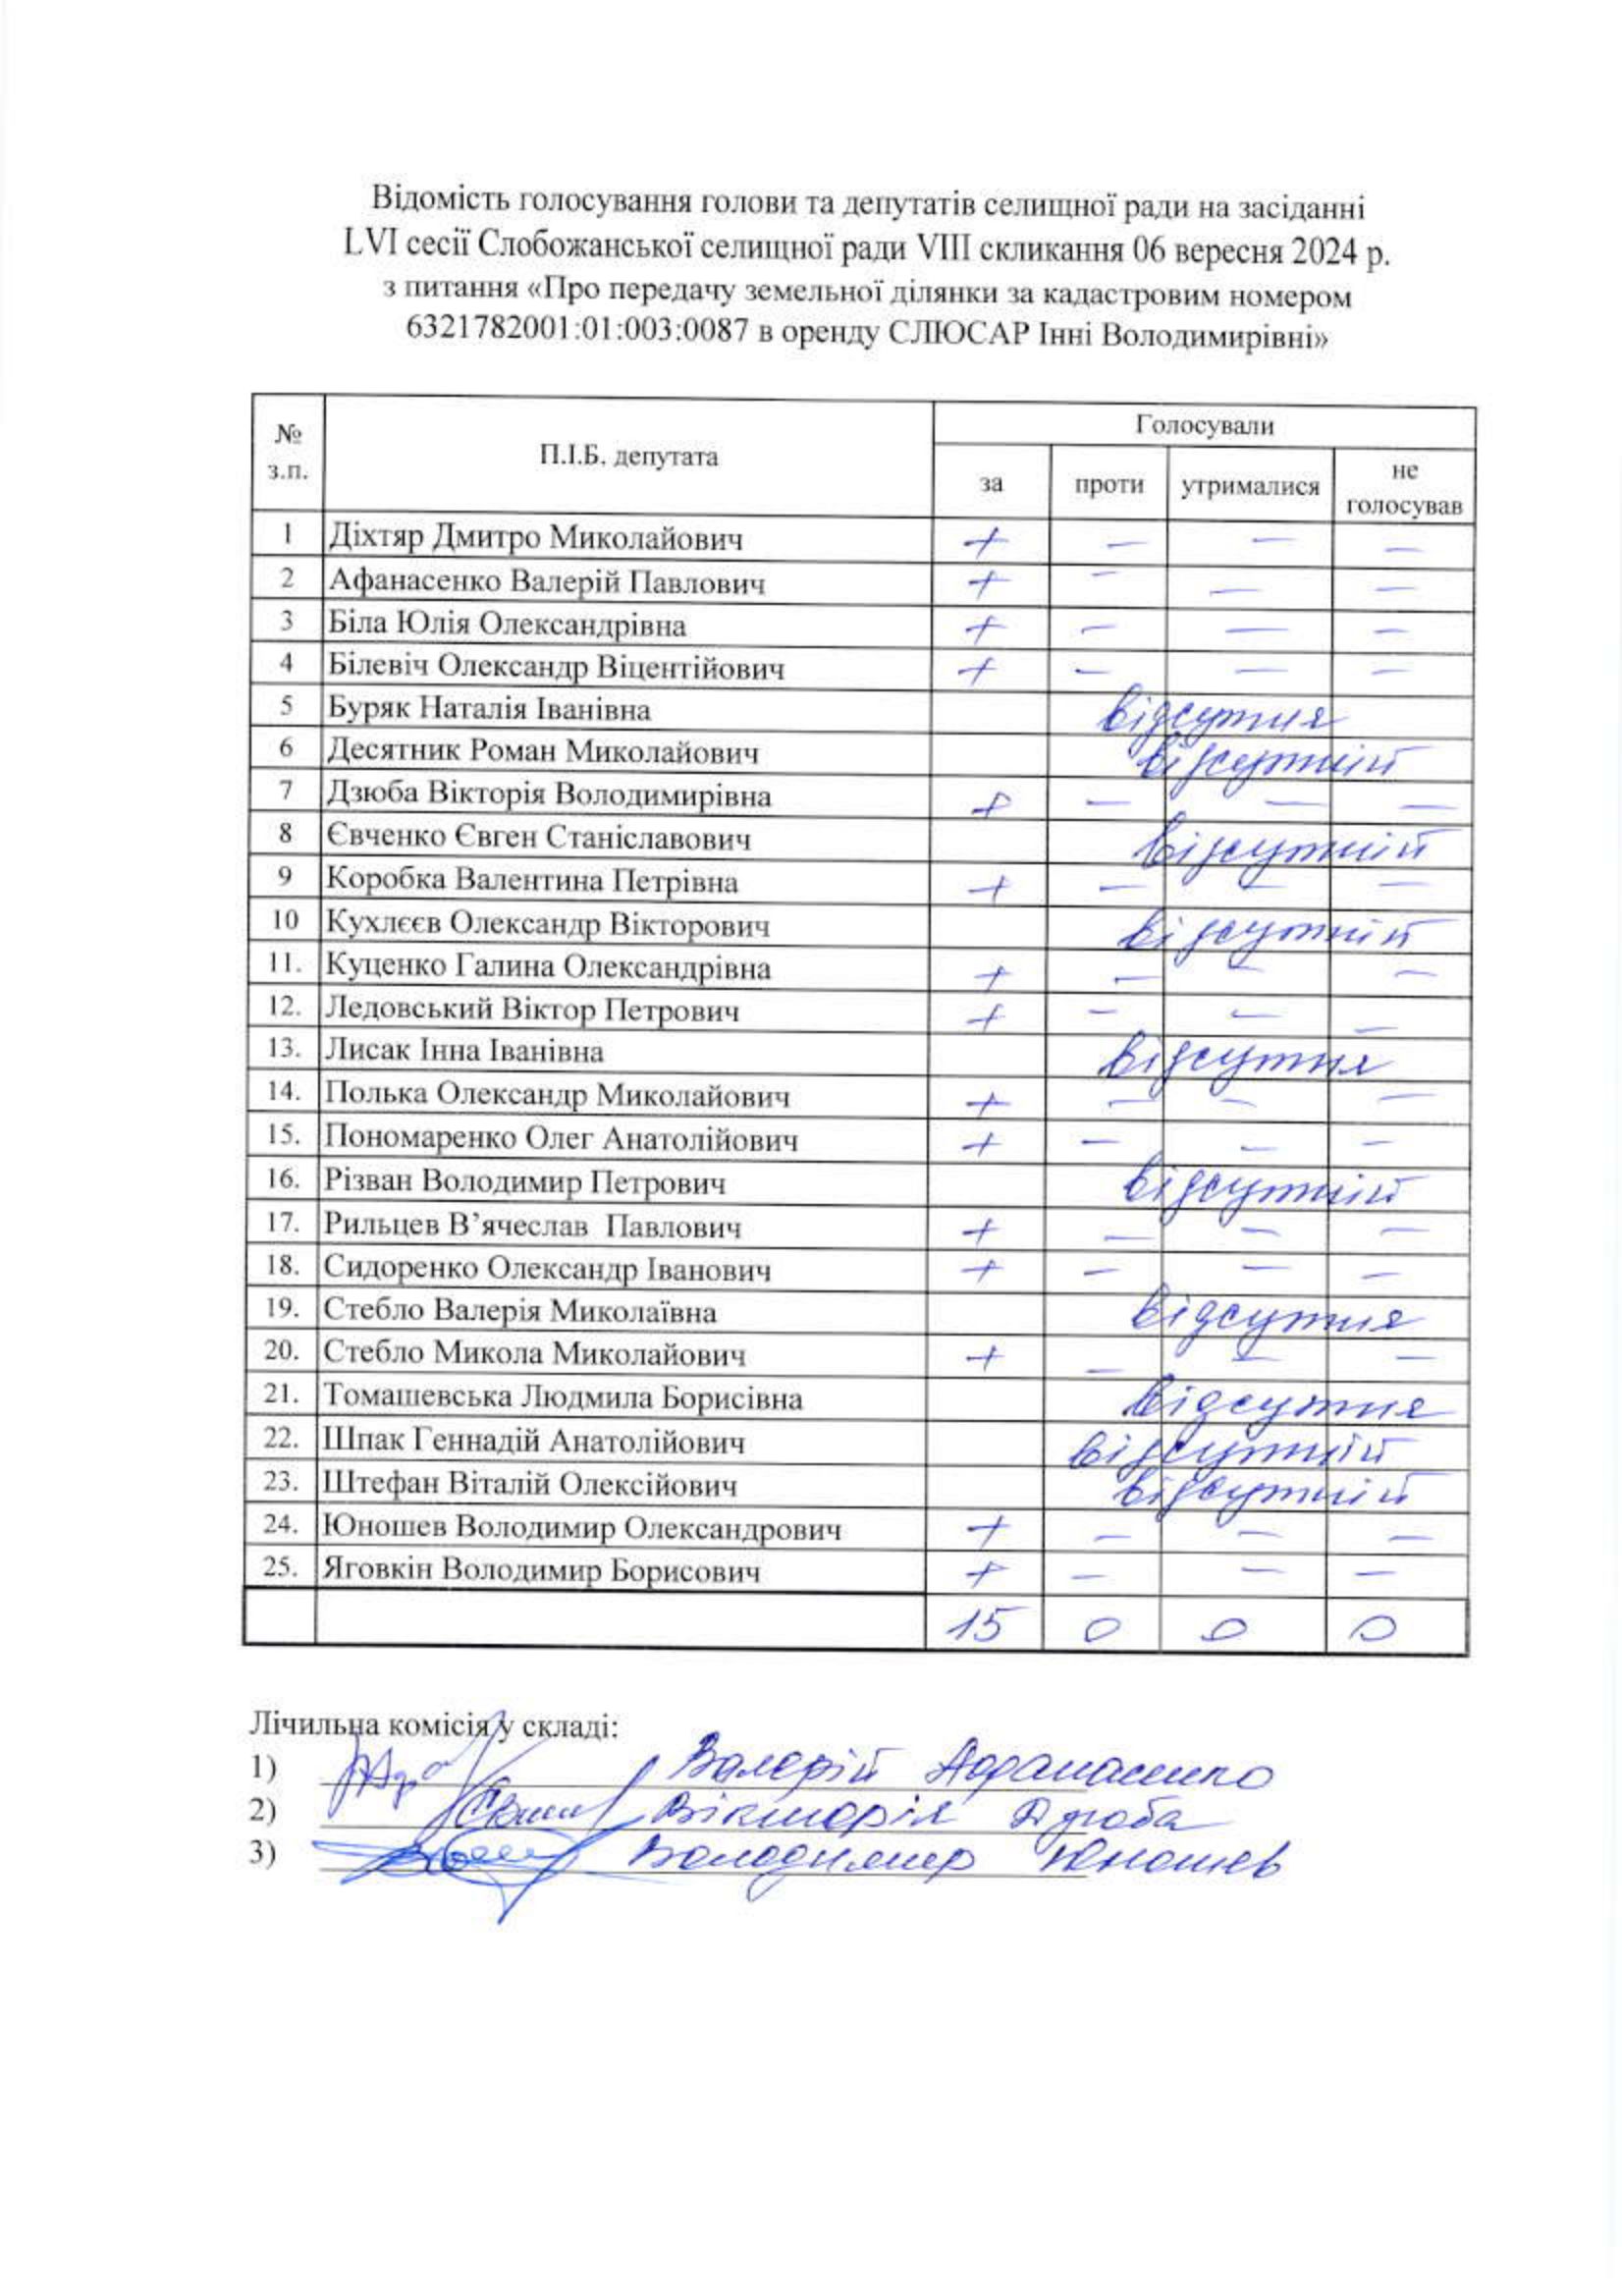 Відомість голосування голови та депутатів селищної ради на засіданні
LVI сесії Слобожанської селищної ради VIII скликання 06 вересня 2024 р.
з питання «Про передачу земельної ділянки за кадастровим номером
6321782001:01:003:0087 в оренду СЛЮСАР Інні Володимирівні»
№ з.п. П.І.Б. депутата Голосували
за проти утрималися не голосував
1 Діхтяр Дмитро Миколайович + — — —
2 Афанасенко Валерій Павлович + — — —
3 Біла Юлія Олександрівна + — — —
4 Білевіч Олександр Віцентійович + — — —
5 Буряк Наталія Іванівна відсутня
6 Десятник Роман Миколайович відсутній
7 Дзюба Вікторія Володимирівна + — — —
8 Євченко Євген Станіславович відсутній
9 Коробка Валентина Петрівна + — — —
10 Кухлєєв Олександр Вікторович відсутній
11. Куценко Галина Олександрівна + — — —
12. Ледовський Віктор Петрович + — — —
13. Лисак Інна Іванівна відсутня
14. Полька Олександр Миколайович + — — —
15. Пономаренко Олег Анатолійович + — — —
16. Різван Володимир Петрович відсутній
17. Рильцев В’ячеслав Павлович + — — —
18. Сидоренко Олександр Іванович + — — —
19. Стебло Валерія Миколаївна відсутня
20. Стебло Микола Миколайович + — — —
21. Томашевська Людмила Борисівна відсутня
22. Шпак Геннадій Анатолійович відсутній
23. Штефан Віталій Олексійович відсутній
24. Юношев Володимир Олександрович + — — —
25. Яговкін Володимир Борисович + — — —
15 0 0 0
Лічильна комісія у складі:
1) Валерій Афанасенко
2) Вікторія Дзюба
3) Володимир Юношев